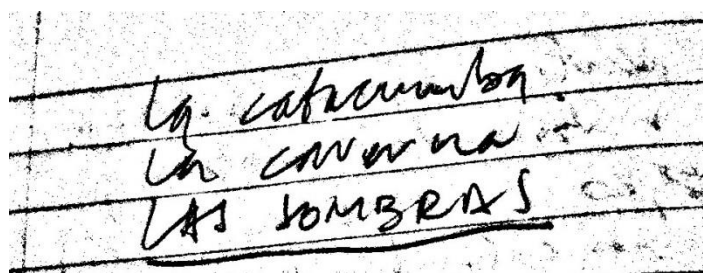 La catacumba
La caverna
LAS SOMBRAS